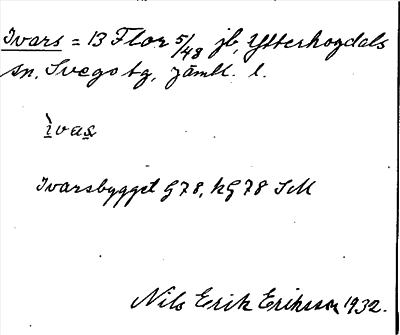 Ivars = 13 Flor 5/48 jb, Ytterhogdals
sn, Svegs tg, Jämtl. l.
ìvas
Ivarsbygget G78, hG78 SM
Nils Erik Eriksson 1932.